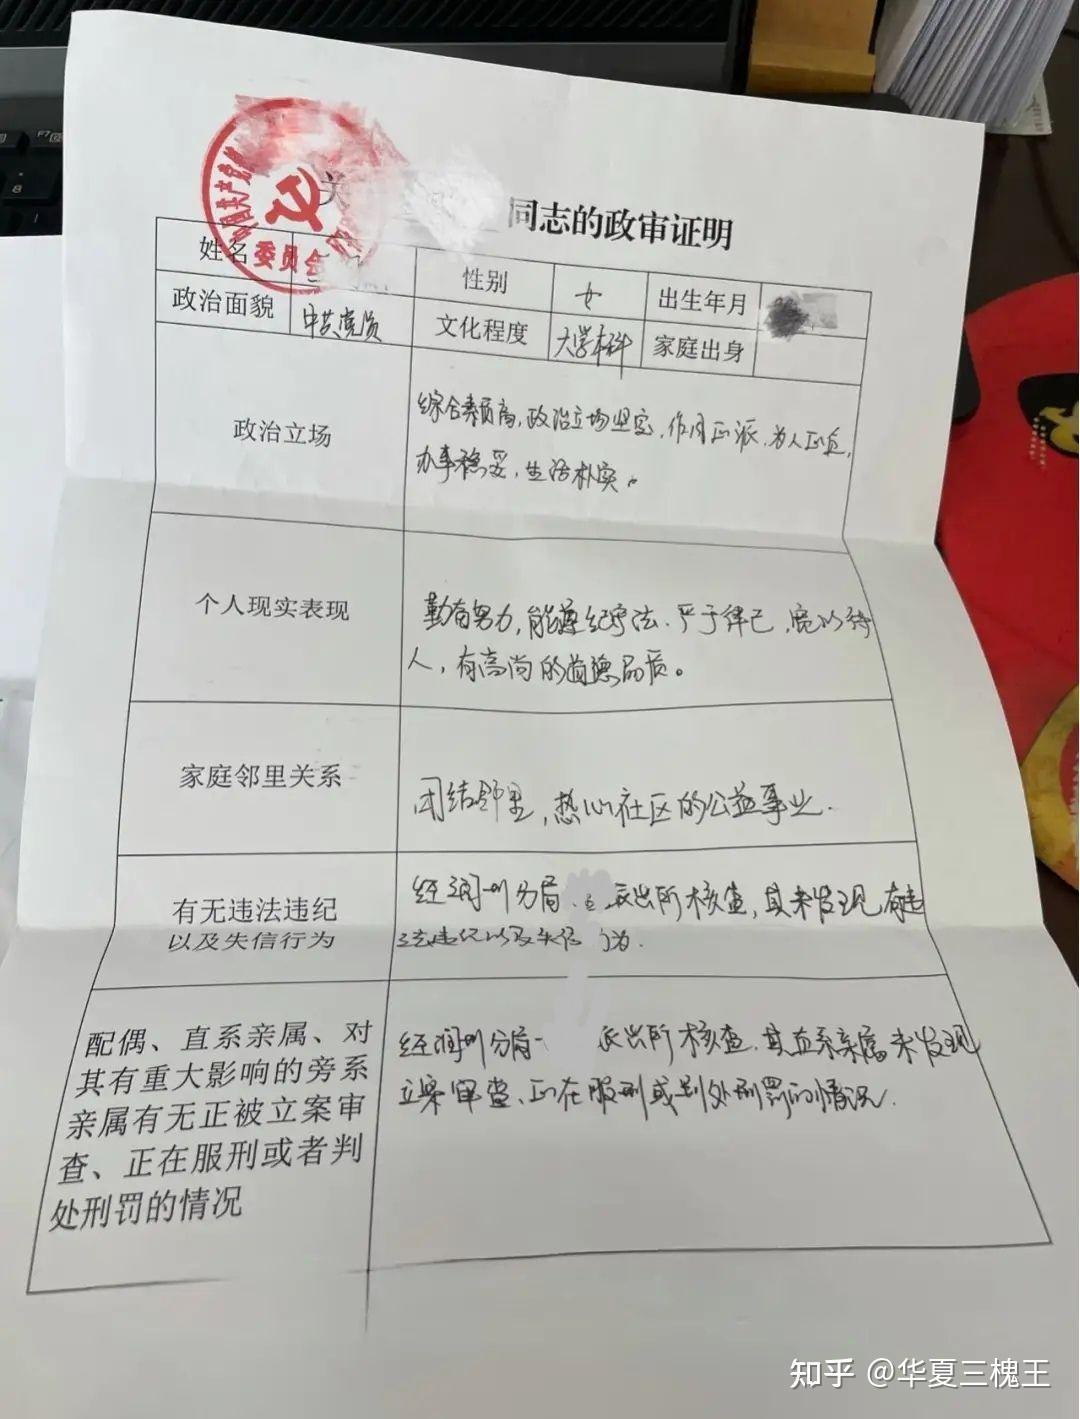 关
同志的政审证明
中国共产党
委员会
姓名
性别 女 出生年月
政治面貌 中共党员 文化程度 大学本科 家庭出身
政治立场
综合素质高,政治立场坚定,作风正派,为人正直,
办事稳妥,生活朴实。
个人现实表现
勤奋努力,能遵纪守法、严于律己,宽以待
人,有高尚的道德品质。
家庭邻里关系
团结邻里,热心社区的公益事业.
有无违法违纪
以及失信行为
经润州分局 派出所核查,其未发现有违
法违纪以及失信行为.
配偶、直系亲属、对
其有重大影响的旁系
亲属有无正被立案审
查、正在服刑或者判
处刑罚的情况
经润州分局 派出所核查,其直系亲属未发现
立案审查、正在服刑或判处刑罚的情况.
知乎 @华夏三槐王